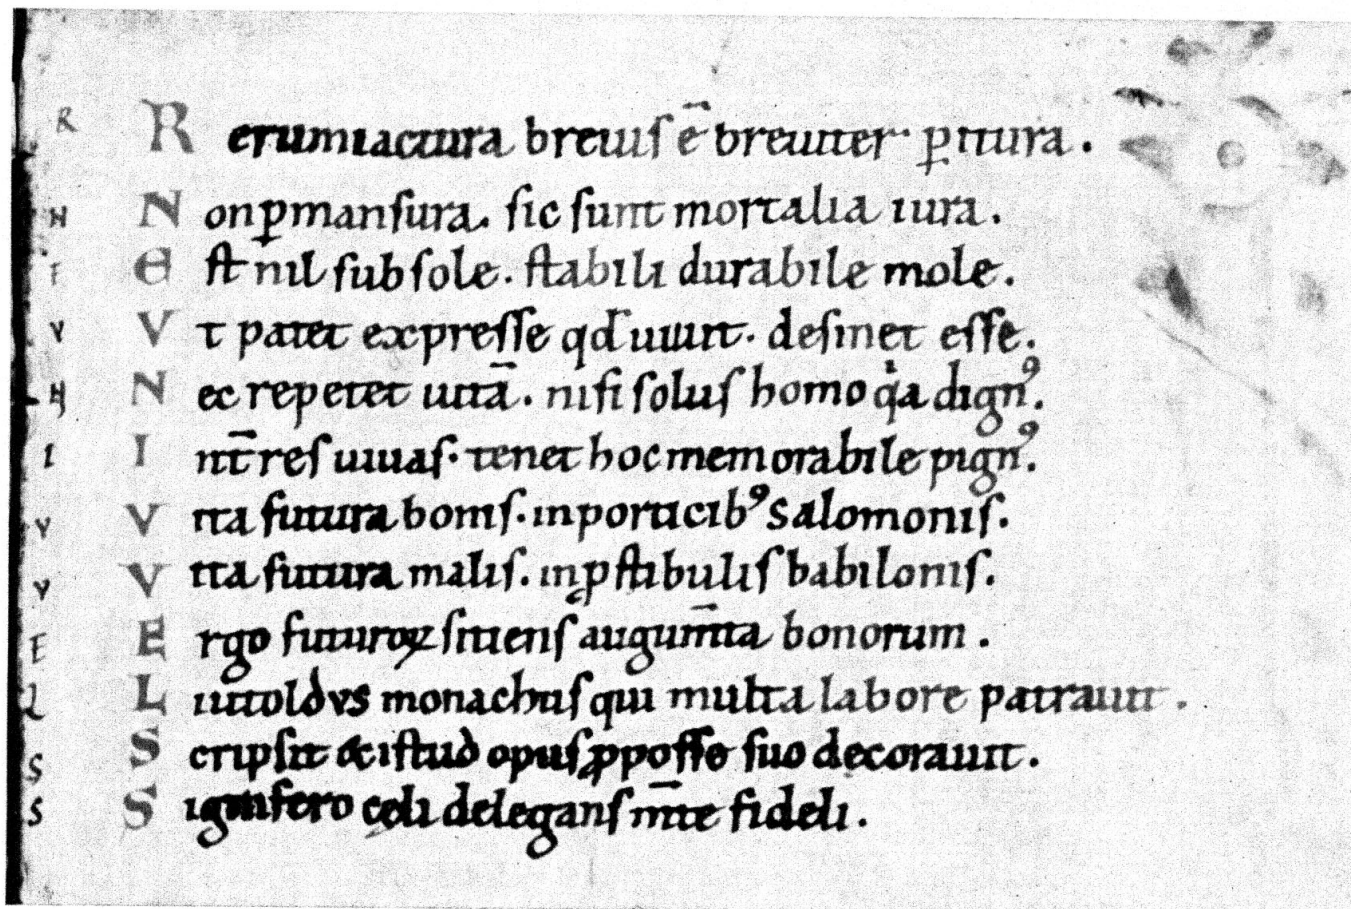 R R erum iactura breuiſ ē breuiter· ꝑitura.
N N on ꝑmanſura. ſic ſunt mortalia iura.
E E ſt nil ſub ſole. ſtabili durabile mole.
V V t patet expreſſe qd̄ uiuit. deſinet eſſe.
N N ec repetet uitā. niſi ſoluſ homo qͥa dignꝰ.
I I nt̄ reſ uiuaſ. tenet hoc memorabile pignꝰ.
V V ita futura boniſ. in porticibꝰ Salomoniſ.
V V ita futura maliſ. in ꝓſtibuliſ babiloniſ.
E E rgo futuroꝝ ſitienſ augum̄ta bonorum.
L L iutoldvs monachuſ qui multa labore patrauit.
S S cripſit & iſtud opuſ ꝓ poſſe ſuo decorauit.
S S ignifero cęli deleganſ m̄te fideli.